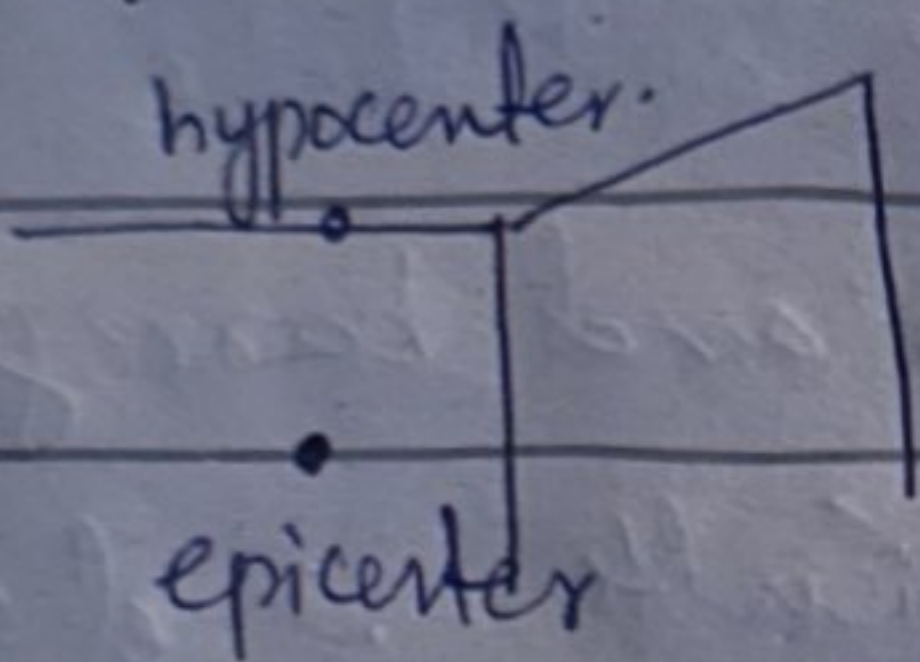 hypocenter.
epicenter